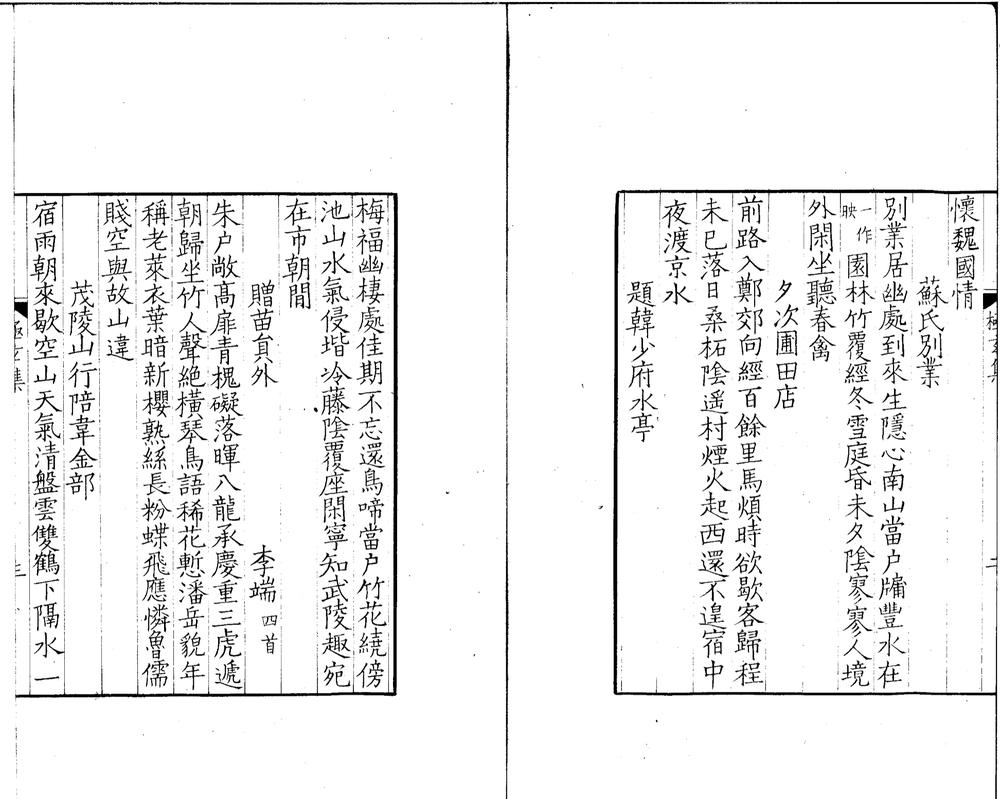 懷魏國情
蘇氏別業
別業居幽處到來生隱心南山當户牖豐水在
一作映園林竹覆經冬雪庭昏未夕陰寥寥人境
外閑坐聽春禽
夕次圃田店
前路入鄭郊向經百餘里馬煩時欲歇客歸程
未已落日桑柘陰遥村煙火起西還不遑宿中
夜渡京水
題韓少府水亭
梅福幽棲處佳期不忘還鳥啼當户竹花繞傍
池山水氣侵堦冷藤陰覆座閑寧知武陵趣宛
在市朝間
贈苗貟外 李端四首
朱户敞高扉青槐礙落暉八龍承慶重三虎遞
朝歸坐竹人聲絶橫琴鳥語稀花慙潘岳貌年
稱老萊衣葉暗新櫻熟絲長粉蝶飛應憐魯儒
賤空與故山違
茂陵山行陪韋金部
宿雨朝來歇空山天氣清盤雲雙鶴下隔水一
極玄集
三